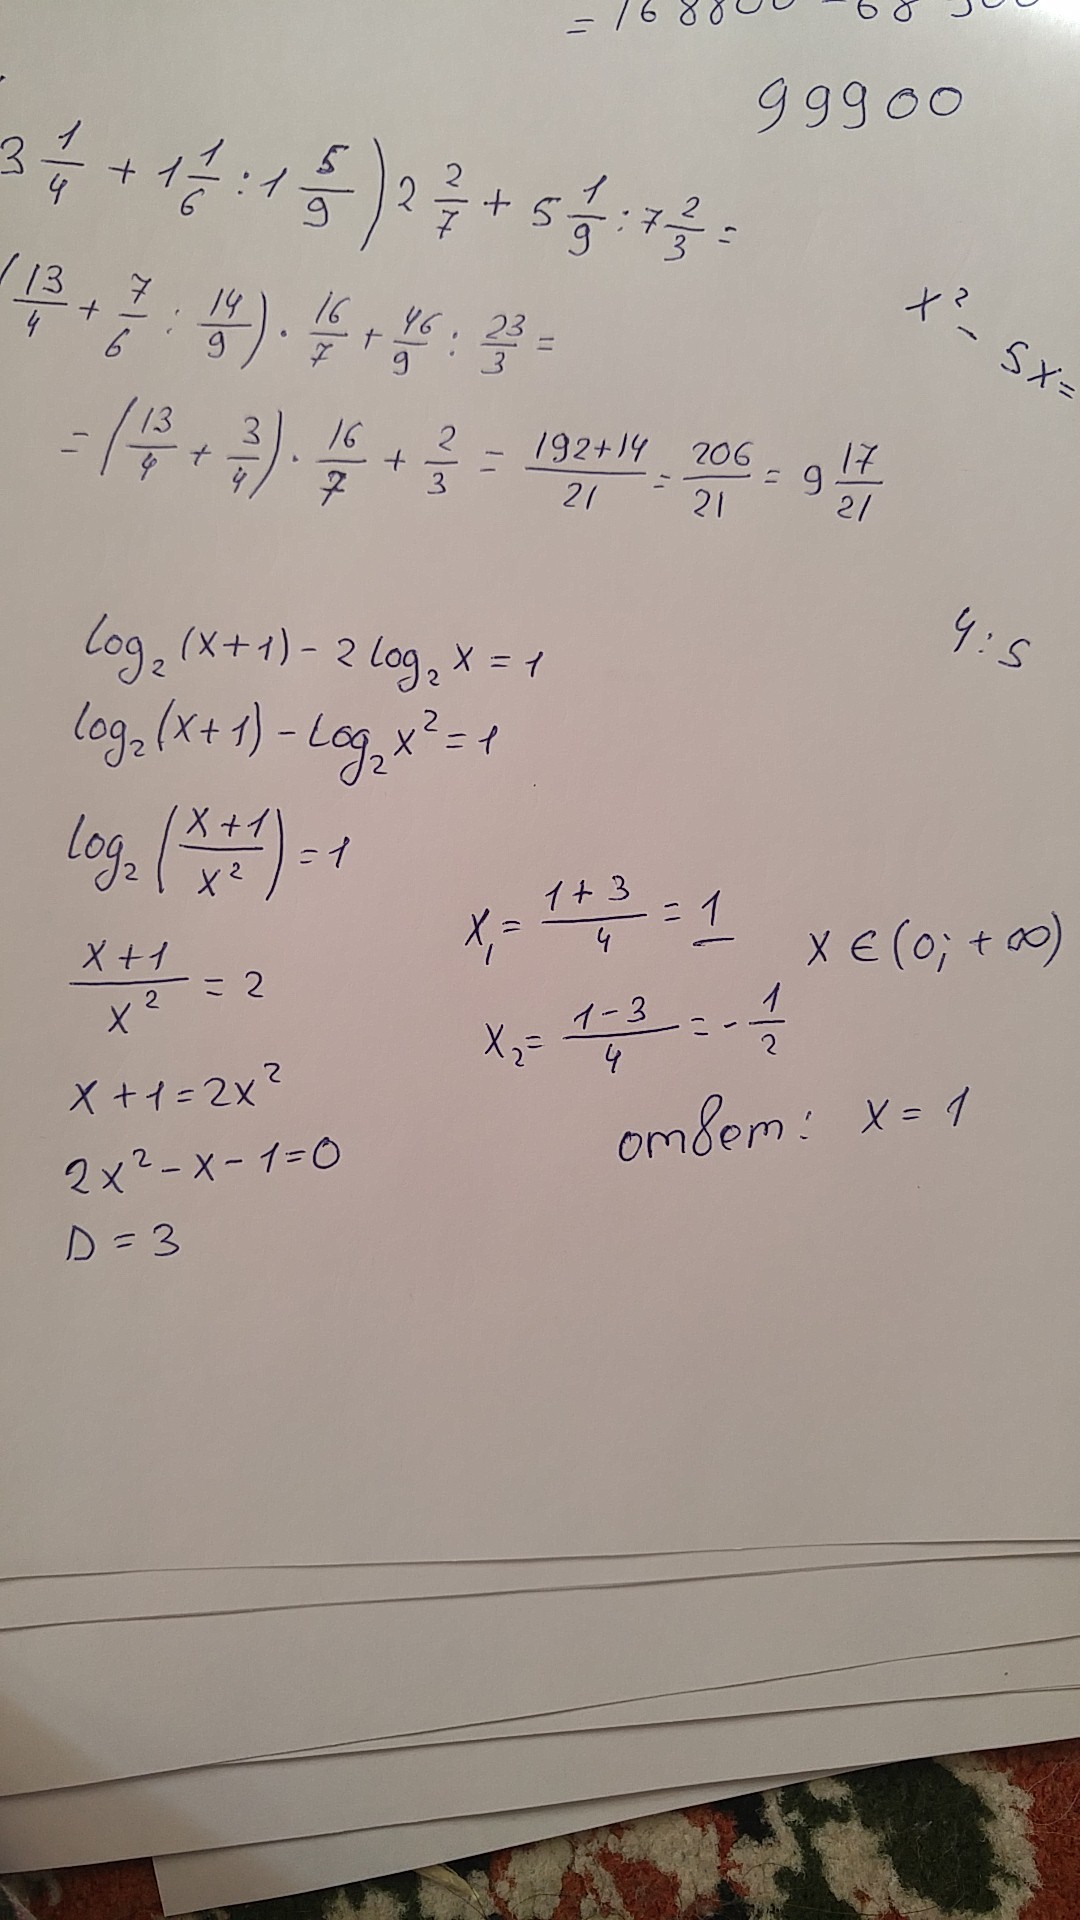 = 168800 - 68
99900
3 1/4 + 1 1/6 : 1 5/9 ) 2 2/7 + 5 1/9 : 7 2/3 =
( 13/4 + 7/6 : 14/9 ) · 16/7 + 46/9 : 23/3 =
x² - 5x =
= ( 13/4 + 3/4 ) · 16/7 + 2/3 = 192+14/21 = 206/21 = 9 17/21
4:5
log₂ (x+1) - 2 log₂ x = 1
log₂ (x+1) - log₂ x² = 1
log₂ ( x+1/x² ) = 1
x+1/x² = 2
x+1 = 2x²
2x² - x - 1 = 0
D = 3
x₁ = 1+3/4 = 1
x ∈ (0; + ∞)
x₂ = 1-3/4 = - 1/2
ответ: x = 1